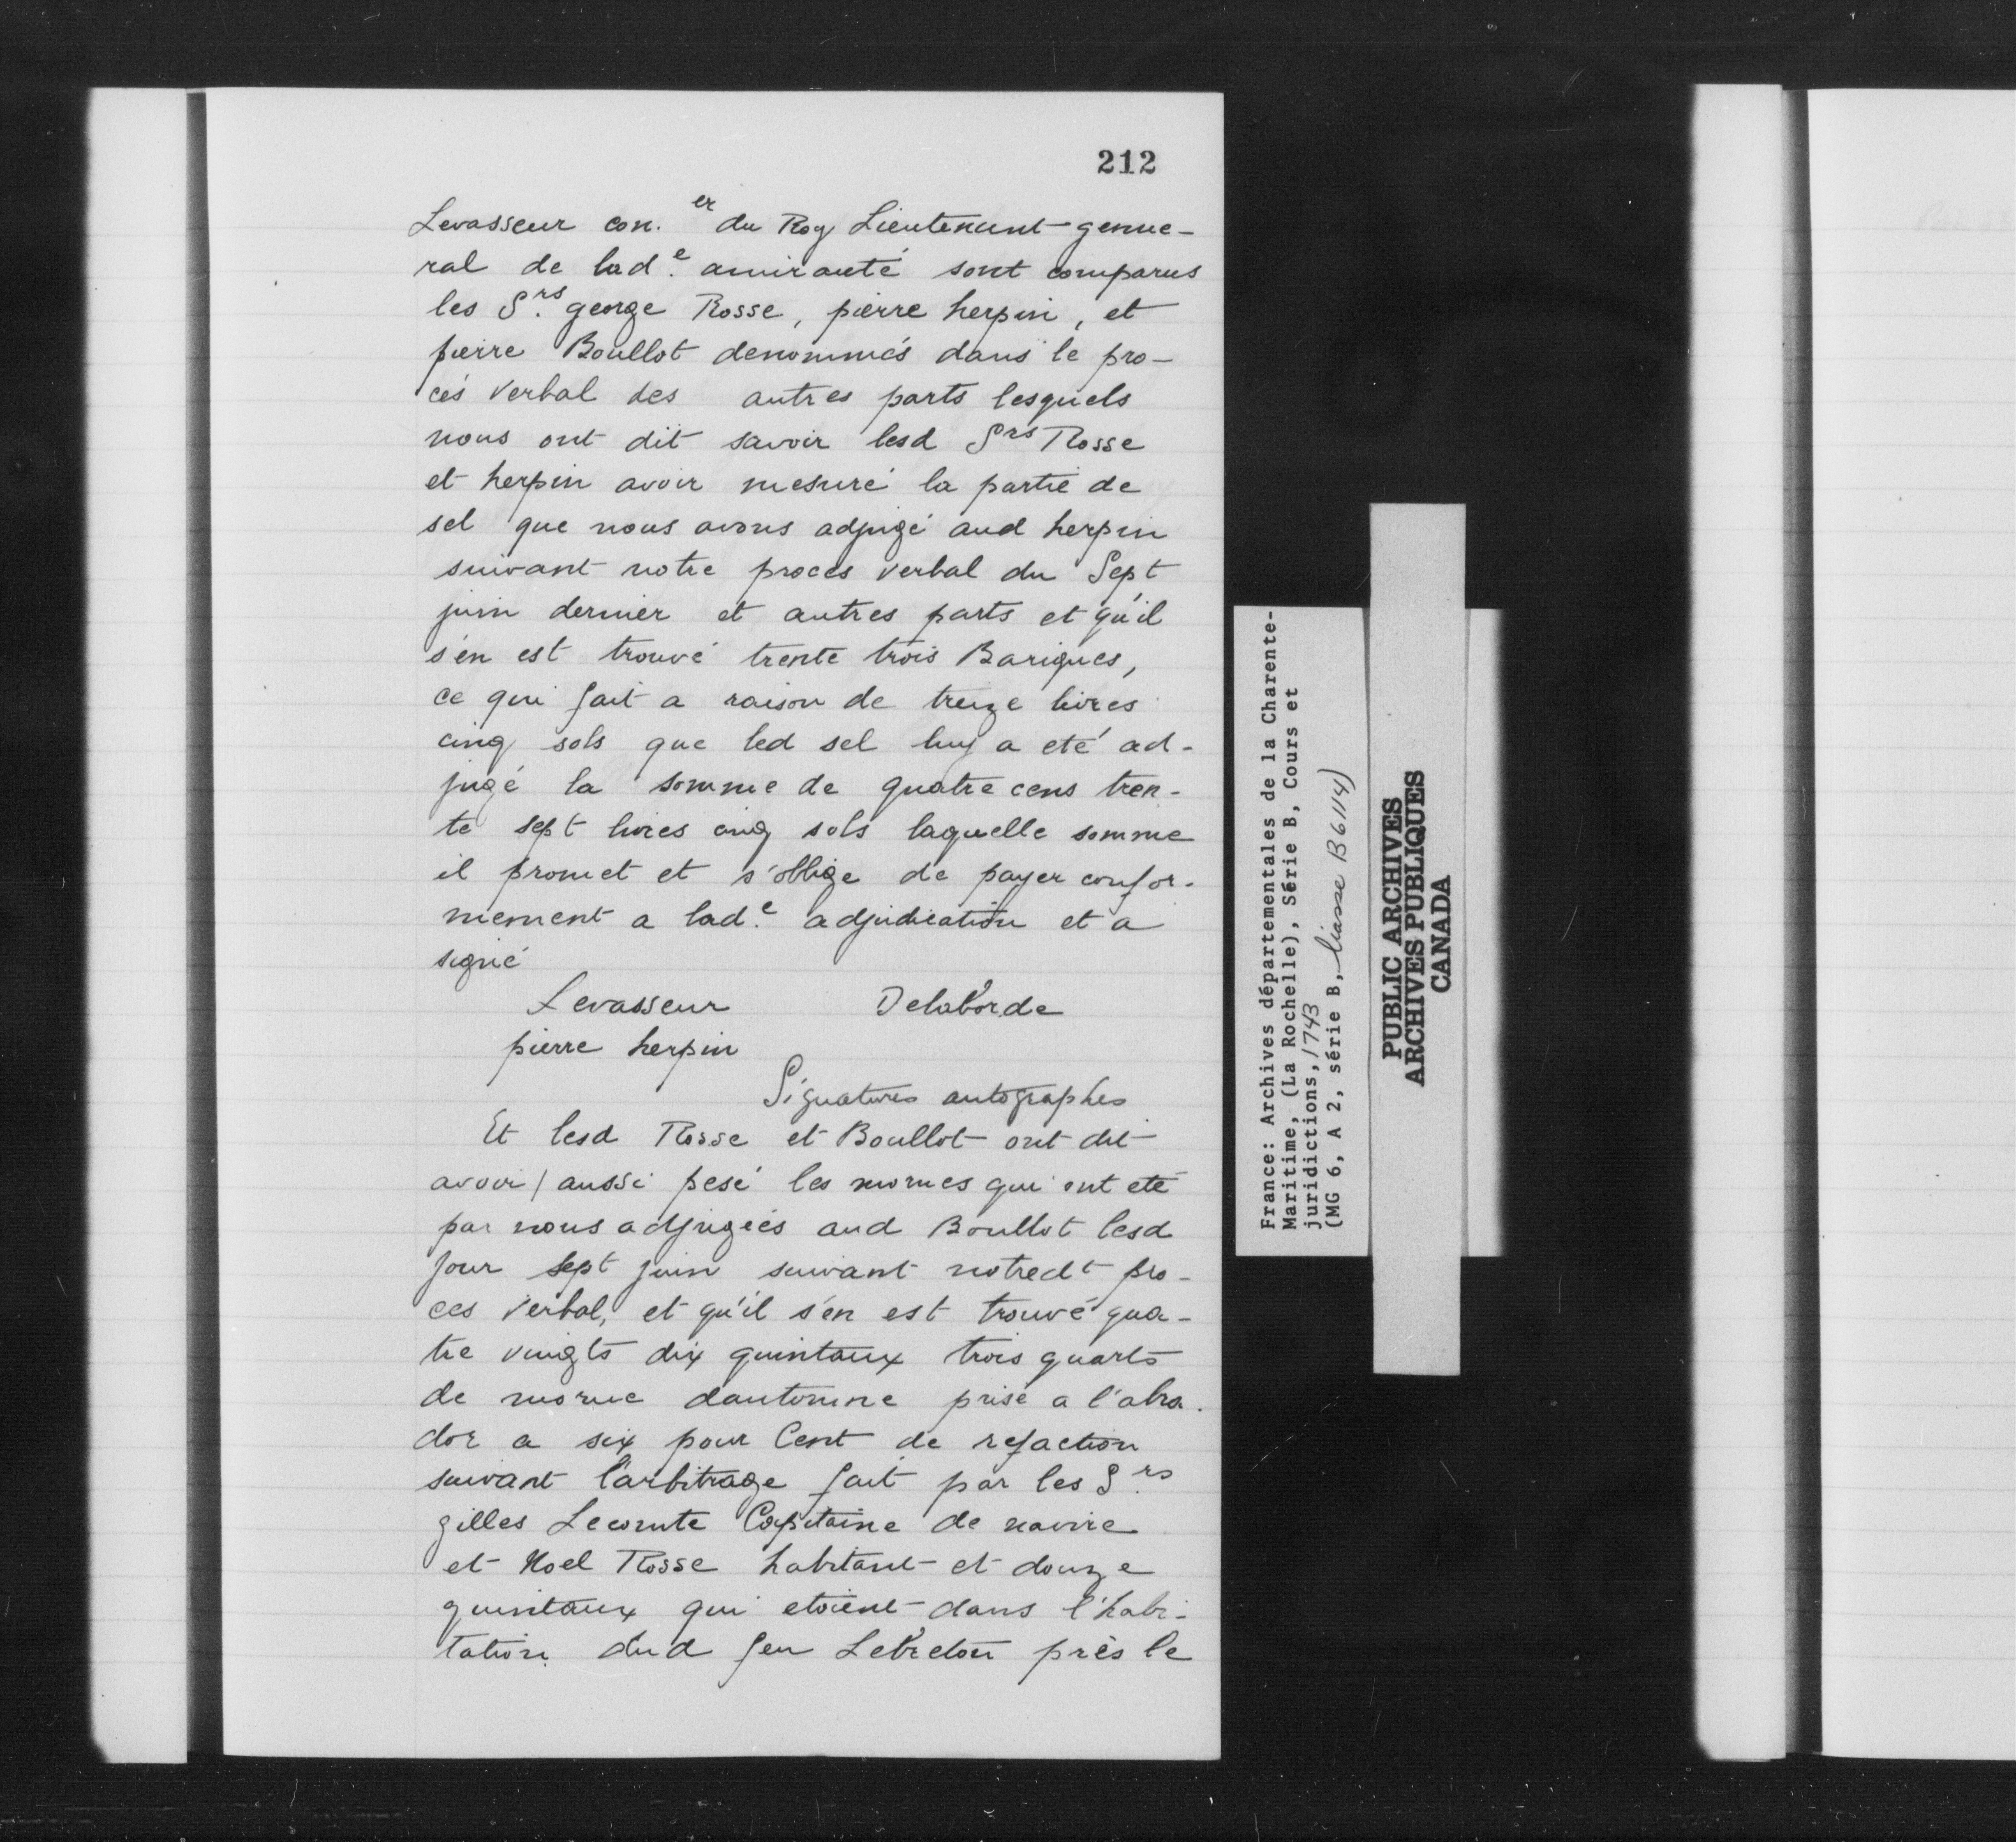 212
Levasseur con.er du Roy Lieutenant genne-
ral de lad.e amirauté sont comparus
les S.rs george Rosse, pierre herpin, et
pierre Boullot denommés dans le pro-
cés verbal des autres parts lesquels
nous ont dit savoir lesd Srs Rosse
et herpin avoir mesuré la partie de
sel que nous avons adjugé aud herpin
suivant notre procés verbal du Sept
juin dernier et autres parts et qu'il
s'en est trouvé trente trois Bariques,
ce qui fait a raison de treize livres
cinq sols que led sel luy a eté ad-
jugé la somme de quatre cens tren-
te sept livres cinq sols laquelle somme
il promet et s'oblige de payer confor-
mement a lad.e adjudication et a
signé
Levasseur Delaborde
pierre herpin
Signatures autographes
Et lesd Rosse et Boullot ont dit
avoir / aussi pesé les morues qui ont eté
par nous adjugées aud Boullot lesd
jour sept juin suivant notredt pro-
ces verbal, et qu'il s'en est trouvé qua-
tre vingts dix quintaux trois quarts
de morue dautomne prise a l'abra-
dor a six pour Cent de refaction
suivant l'arbitrage fait par les S.rs
gilles Lecomte Capitaine de navire
et Noel Rosse habitant et douze
quintaux qui etoient dans l'habi-
tation dud feu Lebreton près le
France: Archives départementales de la Charente-
Maritime, (La Rochelle), Série B, Cours et
juridictions, 1743
(MG 6, A 2, série B, liasse B 6114)
PUBLIC ARCHIVES
ARCHIVES PUBLIQUES
CANADA